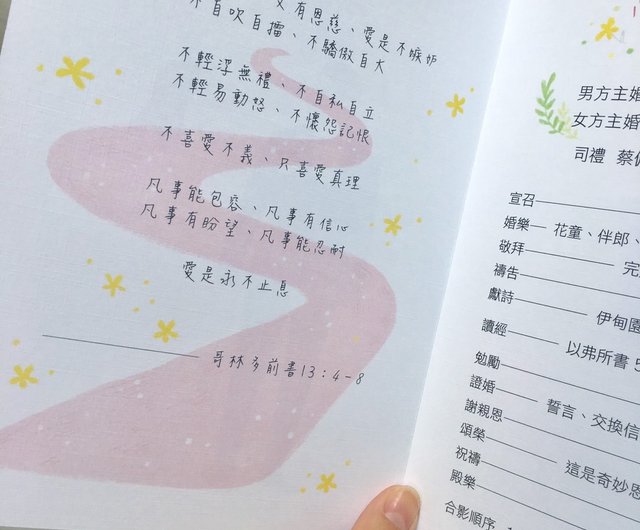 又有恩慈、愛是不嫉妒
不自吹自擂、不驕傲自大
不輕浮無禮、不自私自立
不輕易動怒、不懷怨記恨
不喜愛不義、只喜愛真理
凡事能包容、凡事有信心
凡事有盼望、凡事能忍耐
愛是永不止息
哥林多前書13:4-8
男方主婚
女方主婚
司禮 蔡
宣召
婚樂 花童、伴郎、
敬拜 完
禱告
獻詩 伊甸園
讀經 以弗所書 5
勉勵
證婚 誓言、交換信
謝親恩
頌榮 這是奇妙恩
祝禱
殿樂
合影順序